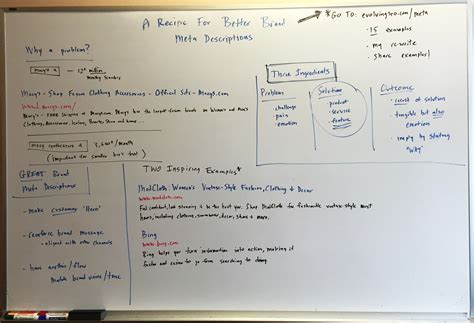 A Recipe For Better Brand
Meta Descriptions
* Go To: evolvingseo.com/meta
- 15 examples
- my re-write
- share examples!
Why a problem?
Macy's
Monthly Searches
Macy's - Shop Fashion Clothing & Accessories - Official Site - Macys.com
www.macys.com/
Macy's - FREE Shipping at Macys.com. Macy's has the largest brands on Women's and Men's
Clothing, Accessories, Jewelry, Beauty, Shoes and
/month
(Important for smaller too)
Three Ingredients
Problem
- challenge
- pain
- emotion
Solution
- product
- service
- feature
Outcome
- result of solution
- tangible but also
emotion
- imply by stating
"Why"
GREAT Brand
Meta Descriptions
- make customer 'Hero'
- reinforce brand message
- aligned with other channels
- have /flow
brand voice/tone
Two Inspiring Examples*
ModCloth: Women's Vintage-Style Fashion, Clothing & Decor
www.modcloth.com
Feel confident, look stunning & be the best you. Shop ModCloth for fashionable vintage-style must
haves, including clothing, swimwear, decor, shoes & more.
Bing
www.bing.com
Bing helps you turn information into action, making it
faster and easier to go from searching to doing